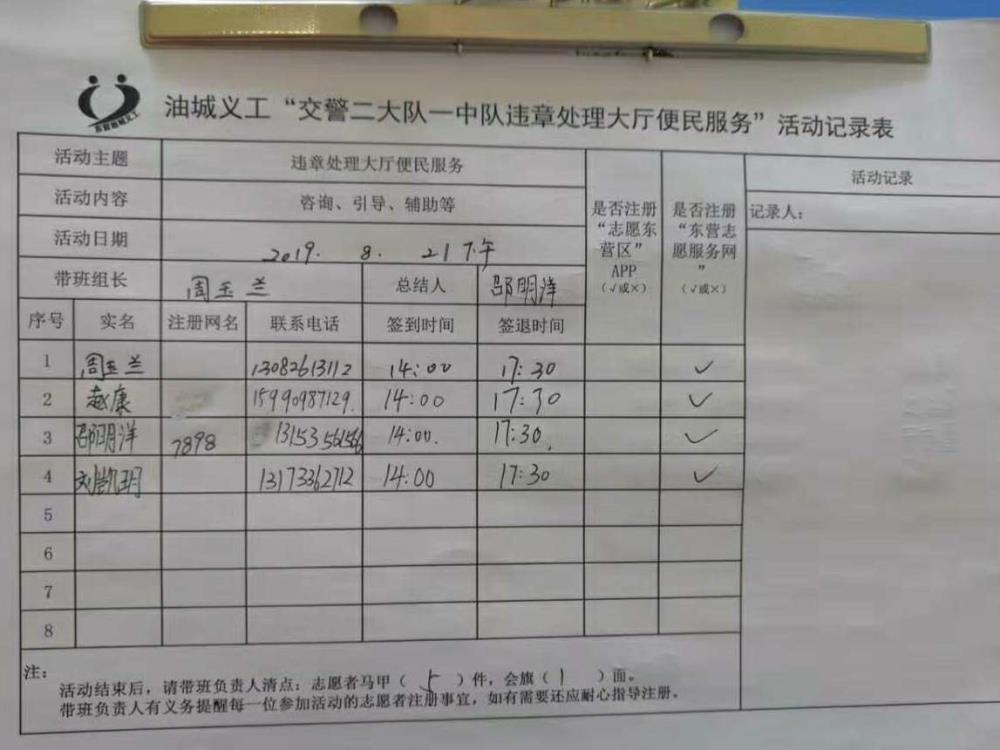 东营油城义工
油城义工“交警二大队一中队违章处理大厅便民服务”活动记录表
活动主题 违章处理大厅便民服务 是否注册“志愿东营区”APP（√或×） 是否注册“东营志愿服务网”（√或×） 活动记录
活动内容 咨询、引导、辅助等 记录人：
活动日期 2019. 8. 21下午
带班组长 周玉兰 总结人 邵明洋
序号 实名 注册网名 联系电话 签到时间 签退时间
1 周玉兰 13082613112 14:00 17:30 ✓
2 赵康 15990987129. 14:00 17:30 ✓
3 邵明洋 7898 1315356156 14:00. 17:30. ✓
4 刘凯玥 13173362712 14:00 17:30 ✓
5
6
7
8
注：
活动结束后，请带班负责人清点：志愿者马甲（ 5 ）件，会旗（ 1 ）面。
带班负责人有义务提醒每一位参加活动的志愿者注册事宜，如有需要还应耐心指导注册。